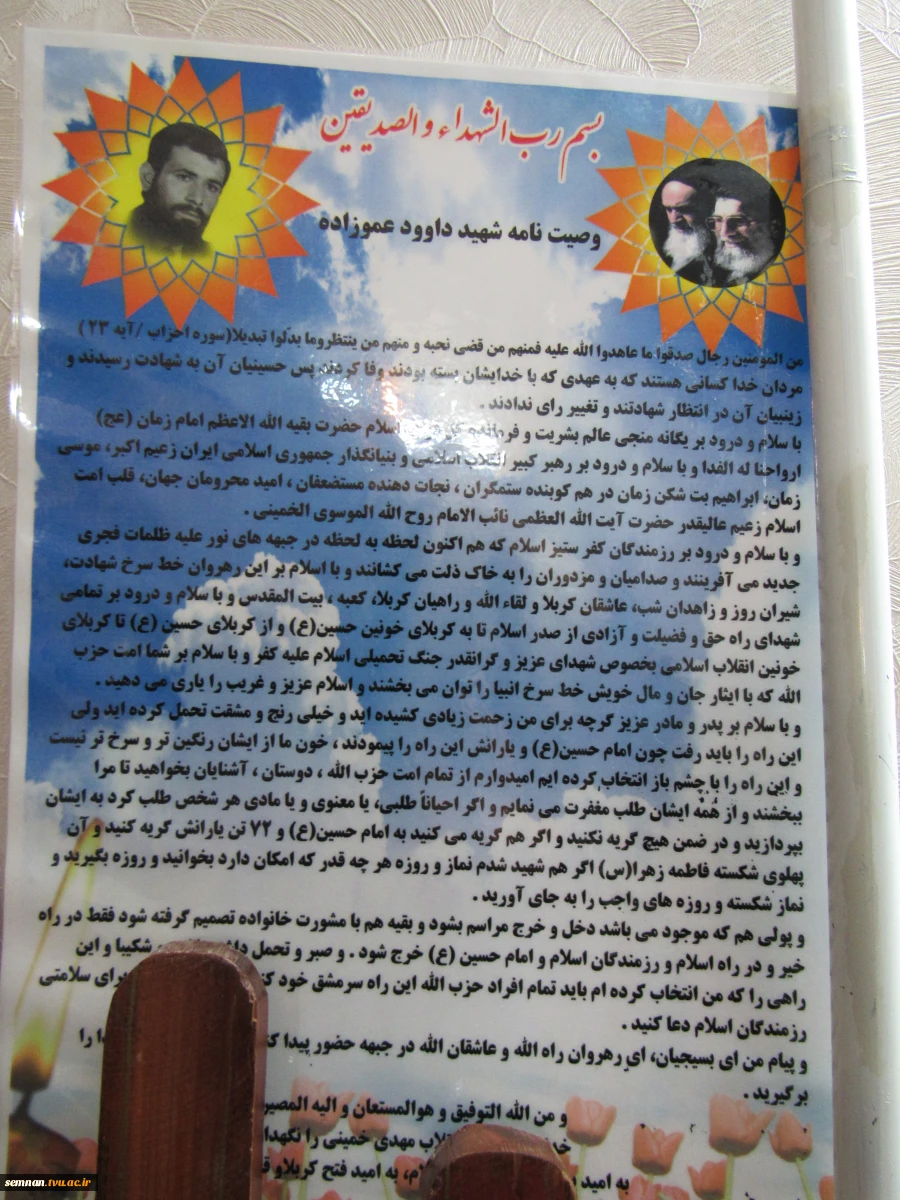 بسم رب الشهداء و الصدیقین
وصیت نامه شهید داوود عموزاده
من المومنین رجال صدقوا ما عاهدوا الله علیه فمنهم من قضی نحبه و منهم من ینتظروما بدّلوا تبدیلا(سوره احزاب /آیه ۲۳)
مردان خدا کسانی هستند که به عهدی که با خدایشان بسته بودند وفا کردند پس حسینیان آن به شهادت رسیدند و
زینبیان آن در انتظار شهادتند و تغییر رای ندادند .
با سلام و درود بر یگانه منجی عالم بشریت و اسلام حضرت بقیه الله الاعظم امام زمان (عج)
ارواحنا له الفدا و با سلام و درود بر رهبر کبیر انقلاب اسلامی و بنیانگذار جمهوری اسلامی ایران زعیم اکبر، موسی
زمان، ابراهیم بت شکن زمان در هم کوبنده ستمگران ، نجات دهنده مستضعفان ، امید محرومان جهان، قلب امت
اسلام زعیم عالیقدر حضرت آیت الله العظمی نائب الامام روح الله الموسوی الخمینی .
و با سلام و درود بر رزمندگان کفر ستیز اسلام که هم اکنون لحظه به لحظه در جبهه های نور علیه ظلمات فجری
جدید می آفرینند و صدامیان و مزدوران را به خاک ذلت می کشانند و با اسلام بر این رهروان خط سرخ شهادت،
شیران روز و زاهدان شب، عاشقان کربلا و لقاء الله و راهیان کربلا، کعبه ، بیت المقدس و با سلام و درود بر تمامی
شهدای راه حق و فضیلت و آزادی از صدر اسلام تا به کربلای خونین حسین(ع) و از کربلای حسین (ع) تا کربلای
خونین انقلاب اسلامی بخصوص شهدای عزیز و گرانقدر جنگ تحمیلی اسلام علیه کفر و با سلام بر شما امت حزب
الله که با ایثار جان و مال خویش خط سرخ انبیا را توان می بخشند و اسلام عزیز و غریب را یاری می دهید .
و با سلام بر پدر و مادر عزیز گرچه برای من زحمت زیادی کشیده اید و خیلی رنج و مشقت تحمل کرده اید ولی
این راه را باید رفت چون امام حسین(ع) و یارانش این راه را پیمودند ، خون ما از ایشان رنگین تر و سرخ تر نیست
و این راه را با چشم باز انتخاب کرده ایم امیدوارم از تمام امت حزب الله ، دوستان ، آشنایان بخواهید تا مرا
ببخشند و از همه ایشان طلب مغفرت می نمایم و اگر احیاناً طلبی، یا معنوی و یا مادی هر شخص طلب کرد به ایشان
بپردازید و در ضمن هیچ گریه نکنید و اگر هم گریه می کنید به امام حسین(ع) و ۷۲ تن یارانش گریه کنید و آن
پهلوی شکسته فاطمه زهرا(س) اگر هم شهید شدم نماز و روزه هر چه قدر که امکان دارد بخوانید و روزه بگیرید و
نماز شکسته و روزه های واجب را به جای آورید .
و پولی هم که موجود می باشد دخل و خرج مراسم بشود و بقیه هم با مشورت خانواده تصمیم گرفته شود فقط در راه
خیر و در راه اسلام و رزمندگان اسلام و امام حسین (ع) خرج شود . و صبر و تحمل شکیبا و این
راهی را که من انتخاب کرده ام باید تمام افراد حزب الله این راه سرمشق خود برای سلامتی
رزمندگان اسلام دعا کنید .
و پیام من ای بسیجیان، ای رهروان راه الله و عاشقان الله در جبهه حضور پیدا را
برگیرید .
و من الله التوفیق و هوالمستعان و الیه المصیر
مهدی خمینی را
به امید به امید فتح کربلا و
semnan.tvu.ac.ir